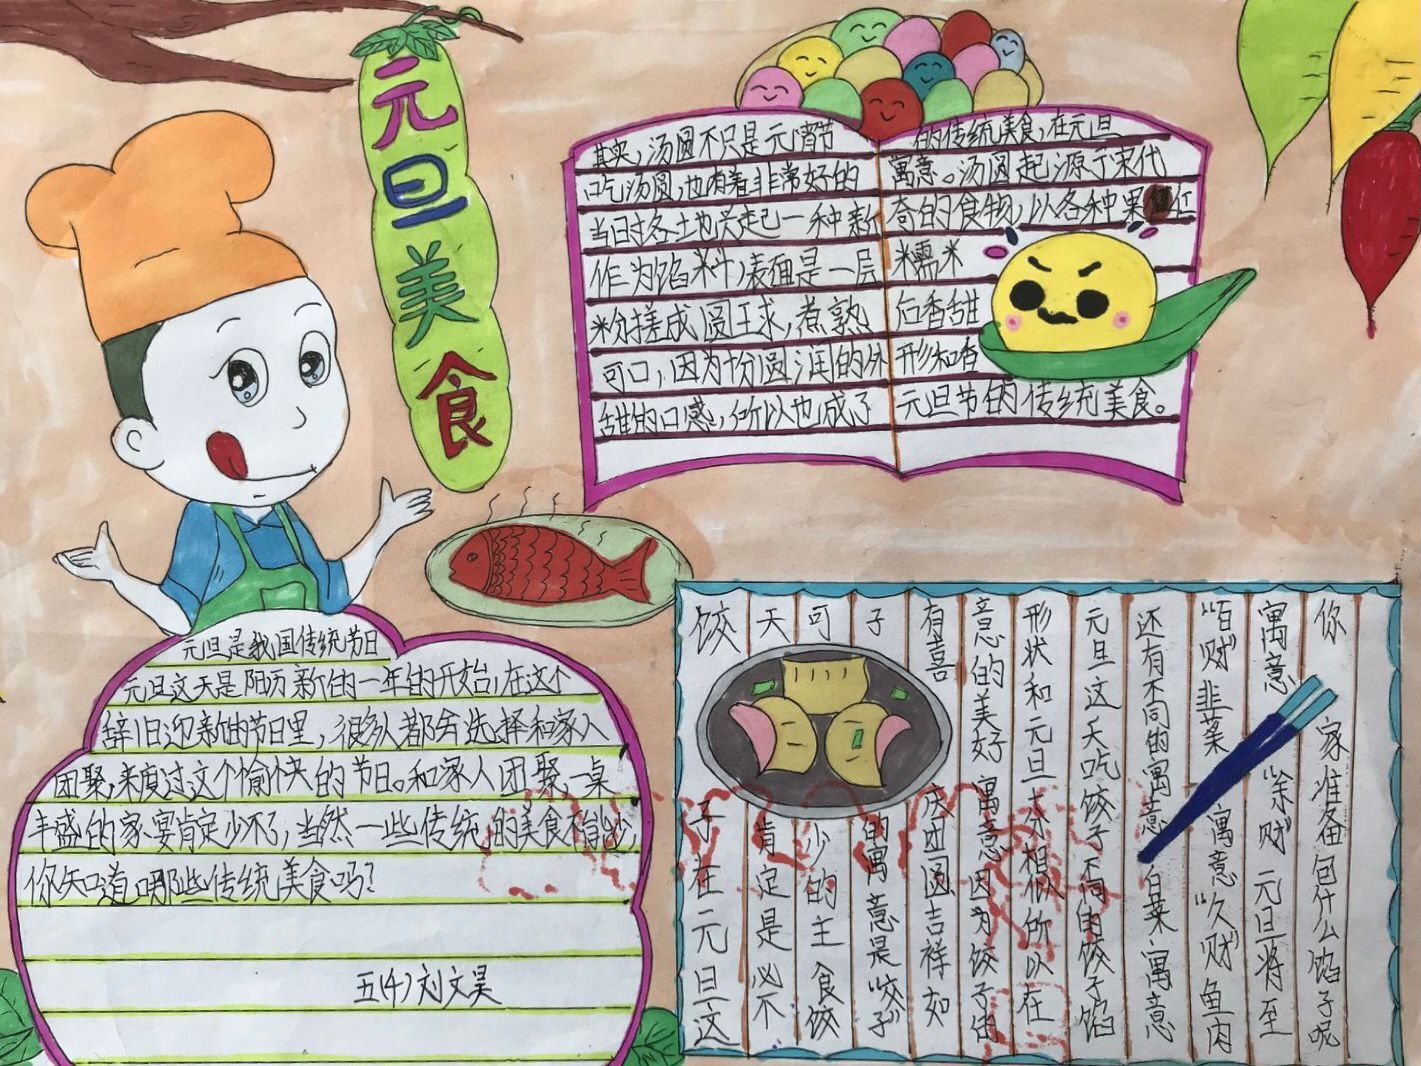 元旦美食
其实,汤圆不只是元宵节的传统美食,在元旦
吃汤圆,也有着非常好的寓意。汤圆起源于宋代
当时各土也兴起一种新奇的食物,以各种果仁
作为馅料,表面是一层糯米
粉搓成圆球,煮熟后香甜
可口,因为十分圆润的外形和香
甜的口感,所以也成了元旦节的传统美食。
元旦是我国传统节日
元旦这天是阳历新的一年的开始,在这个
辞旧迎新的节日里,很多人都会选择和家人
团聚,来度过这个愉快的节日。和家人团聚一桌
丰盛的家宴肯定少不了,当然一些传统的美食不能少,
你知道哪些传统美食吗?
五(4)刘文昊
饺子在元旦这
天肯定是必不
可少的主食饺
子的寓意是“饺子”
有喜庆团圆吉祥如
意的美好寓意因为饺子的
形状和元旦本相似的以在
元旦这天吃饺子不同的饺子馅
还有不同的寓意白菜寓意
“百财”韭菜寓意“久财”鱼肉
寓意“余财”元旦将至
你家准备包什么馅子呢